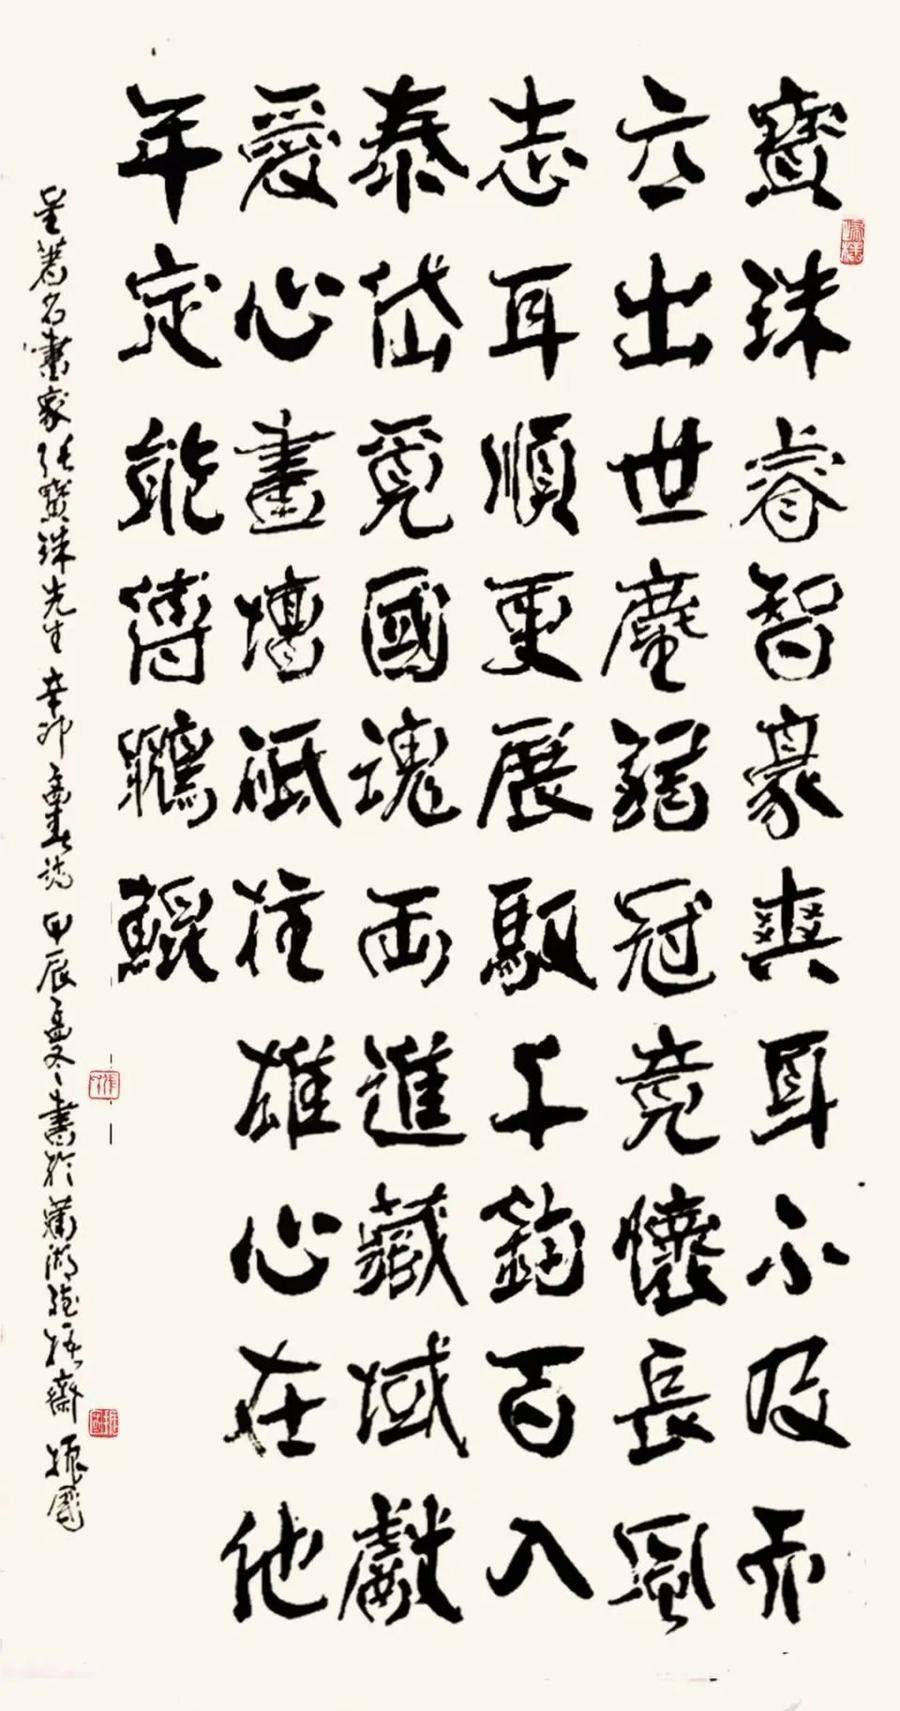 寶珠睿智豪爽耳不及而
立出世塵誰冠竞懷長風
志耳順更展馭千鈞百入
泰岱覓國魂两進藏域獻
爱心畫壇砥柱雄心在他
年定能傳鵬鯤
呈著名畫家张寶珠先生 辛卯重九诗 甲辰孟冬書於 齋 振國